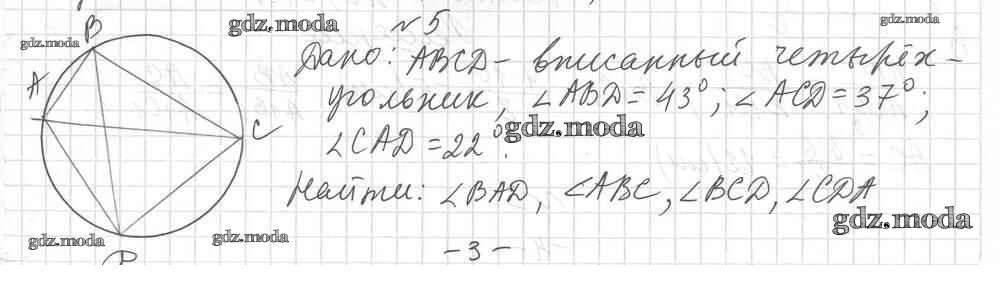 gdz.moda
№5
gdz.moda
gdz.moda
B
Дано: ABCD - вписанный четырёх-
A
угольник, ∠ABD = 43°; ∠ACD = 37°;
C
∠CAD = 22°.
gdz.moda
Найти: ∠BAD, ∠ABC, ∠BCD, ∠CDA
gdz.moda
gdz.moda
gdz.moda
- 3 -